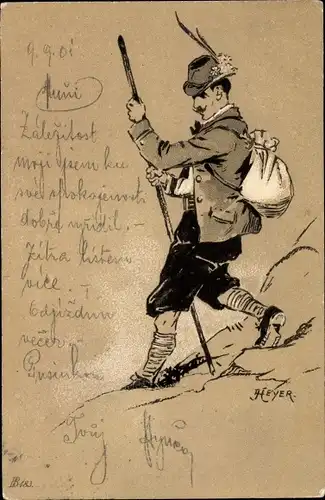 9.9.01
Záležitost
moji jsem ku
své spokojenosti
dobře vyřídil. –
Zítra listem
více. –
Odjíždím
večer.
Tvůj
HEYER.